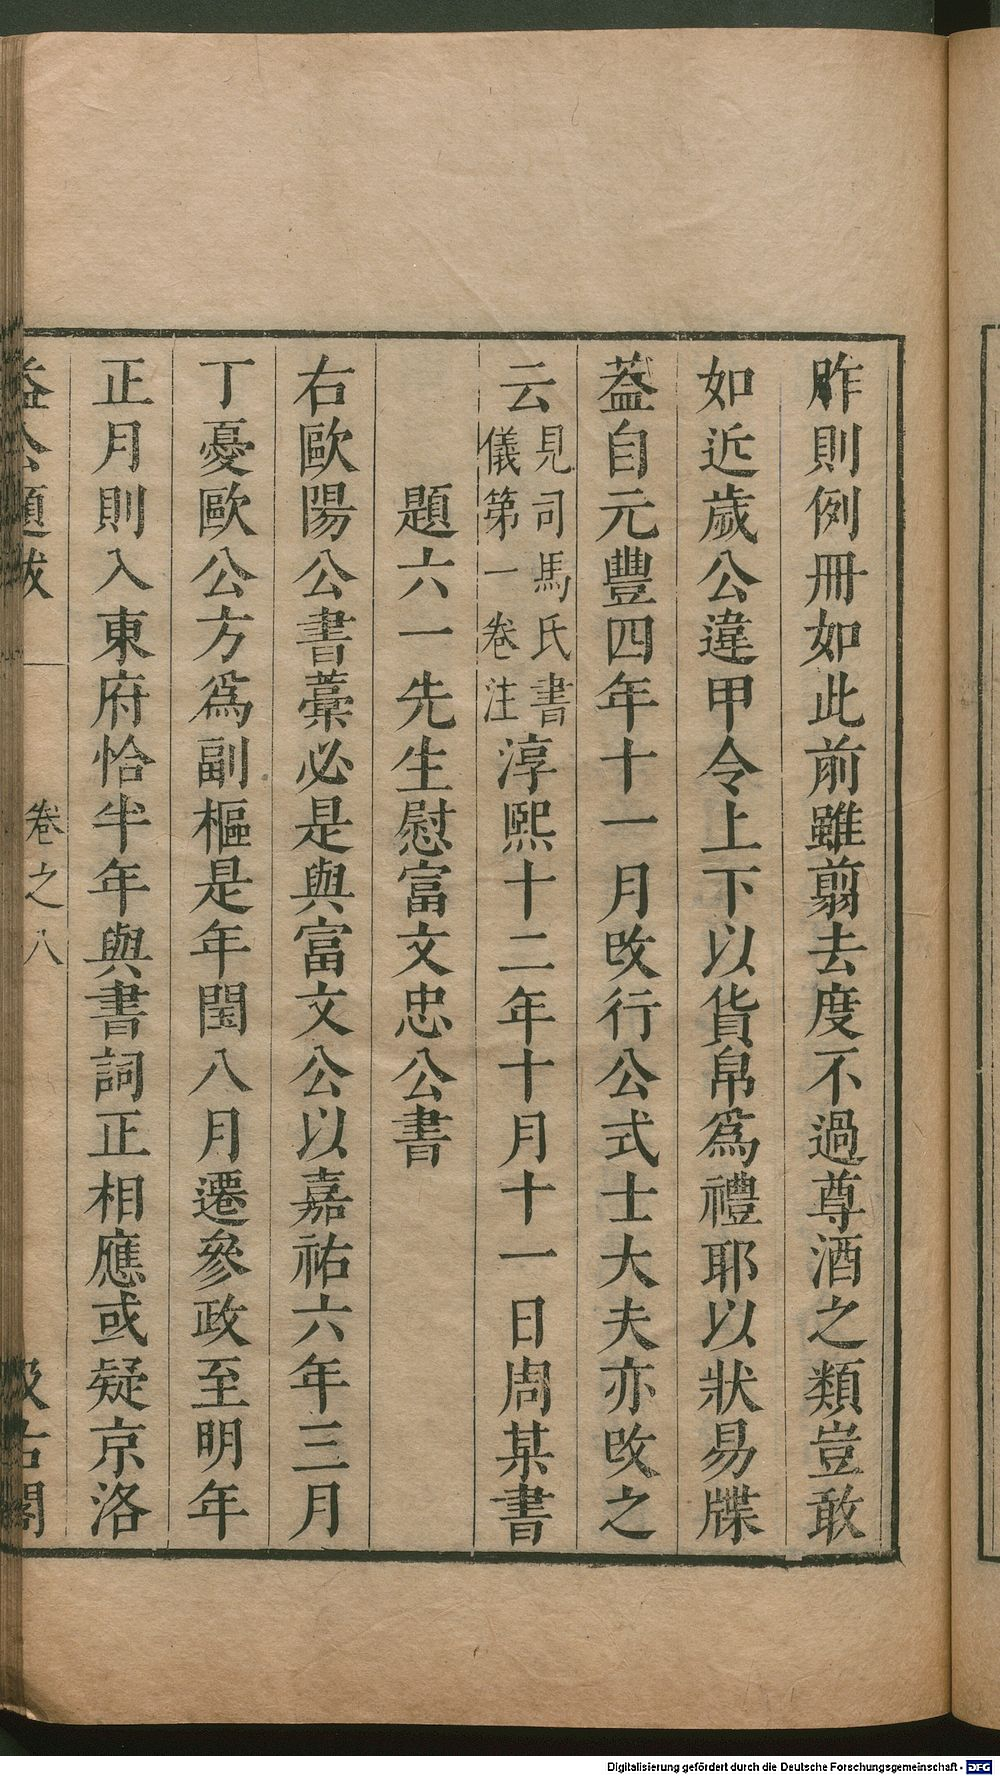 昨則例冊如此前雖翦去度不過尊酒之類豈敢
如近歲公違甲令上下以貨帛爲禮耶以狀易牒
葢自元豐四年十一月改行公式士大夫亦改之
云見司馬氏書儀第一卷注淳熙十二年十月十一日周某書
題六一先生慰富文忠公書
右歐陽公書藁必是與富文公以嘉祐六年三月
丁憂歐公方爲副樞是年閏八月遷參政至明年
正月則入東府恰半年與書詞正相應或疑京洛
益公題跋 卷之八 汲古閣
Digitalisierung gefördert durch die Deutsche Forschungsgemeinschaft - DFG